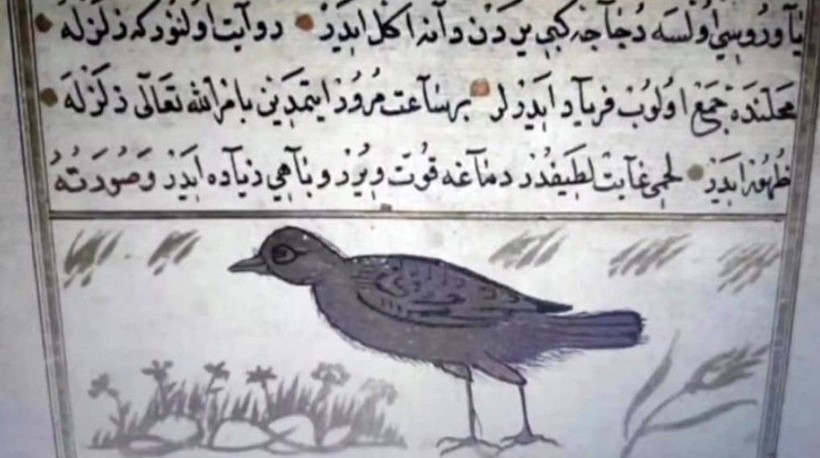 ياوروسي اولسه دجاجه كبي يردن دانه اكل ايدر روايت اولنور كه زلزله
محلنده جمع اولوب فرياد ايدرلر برساعت مرور ايتمدين بامر الله تعالى زلزله
ظهور ايدر لحمي غايت لطيفدر دماغه قوت ويرر و باهي زياده ايدر وصورته